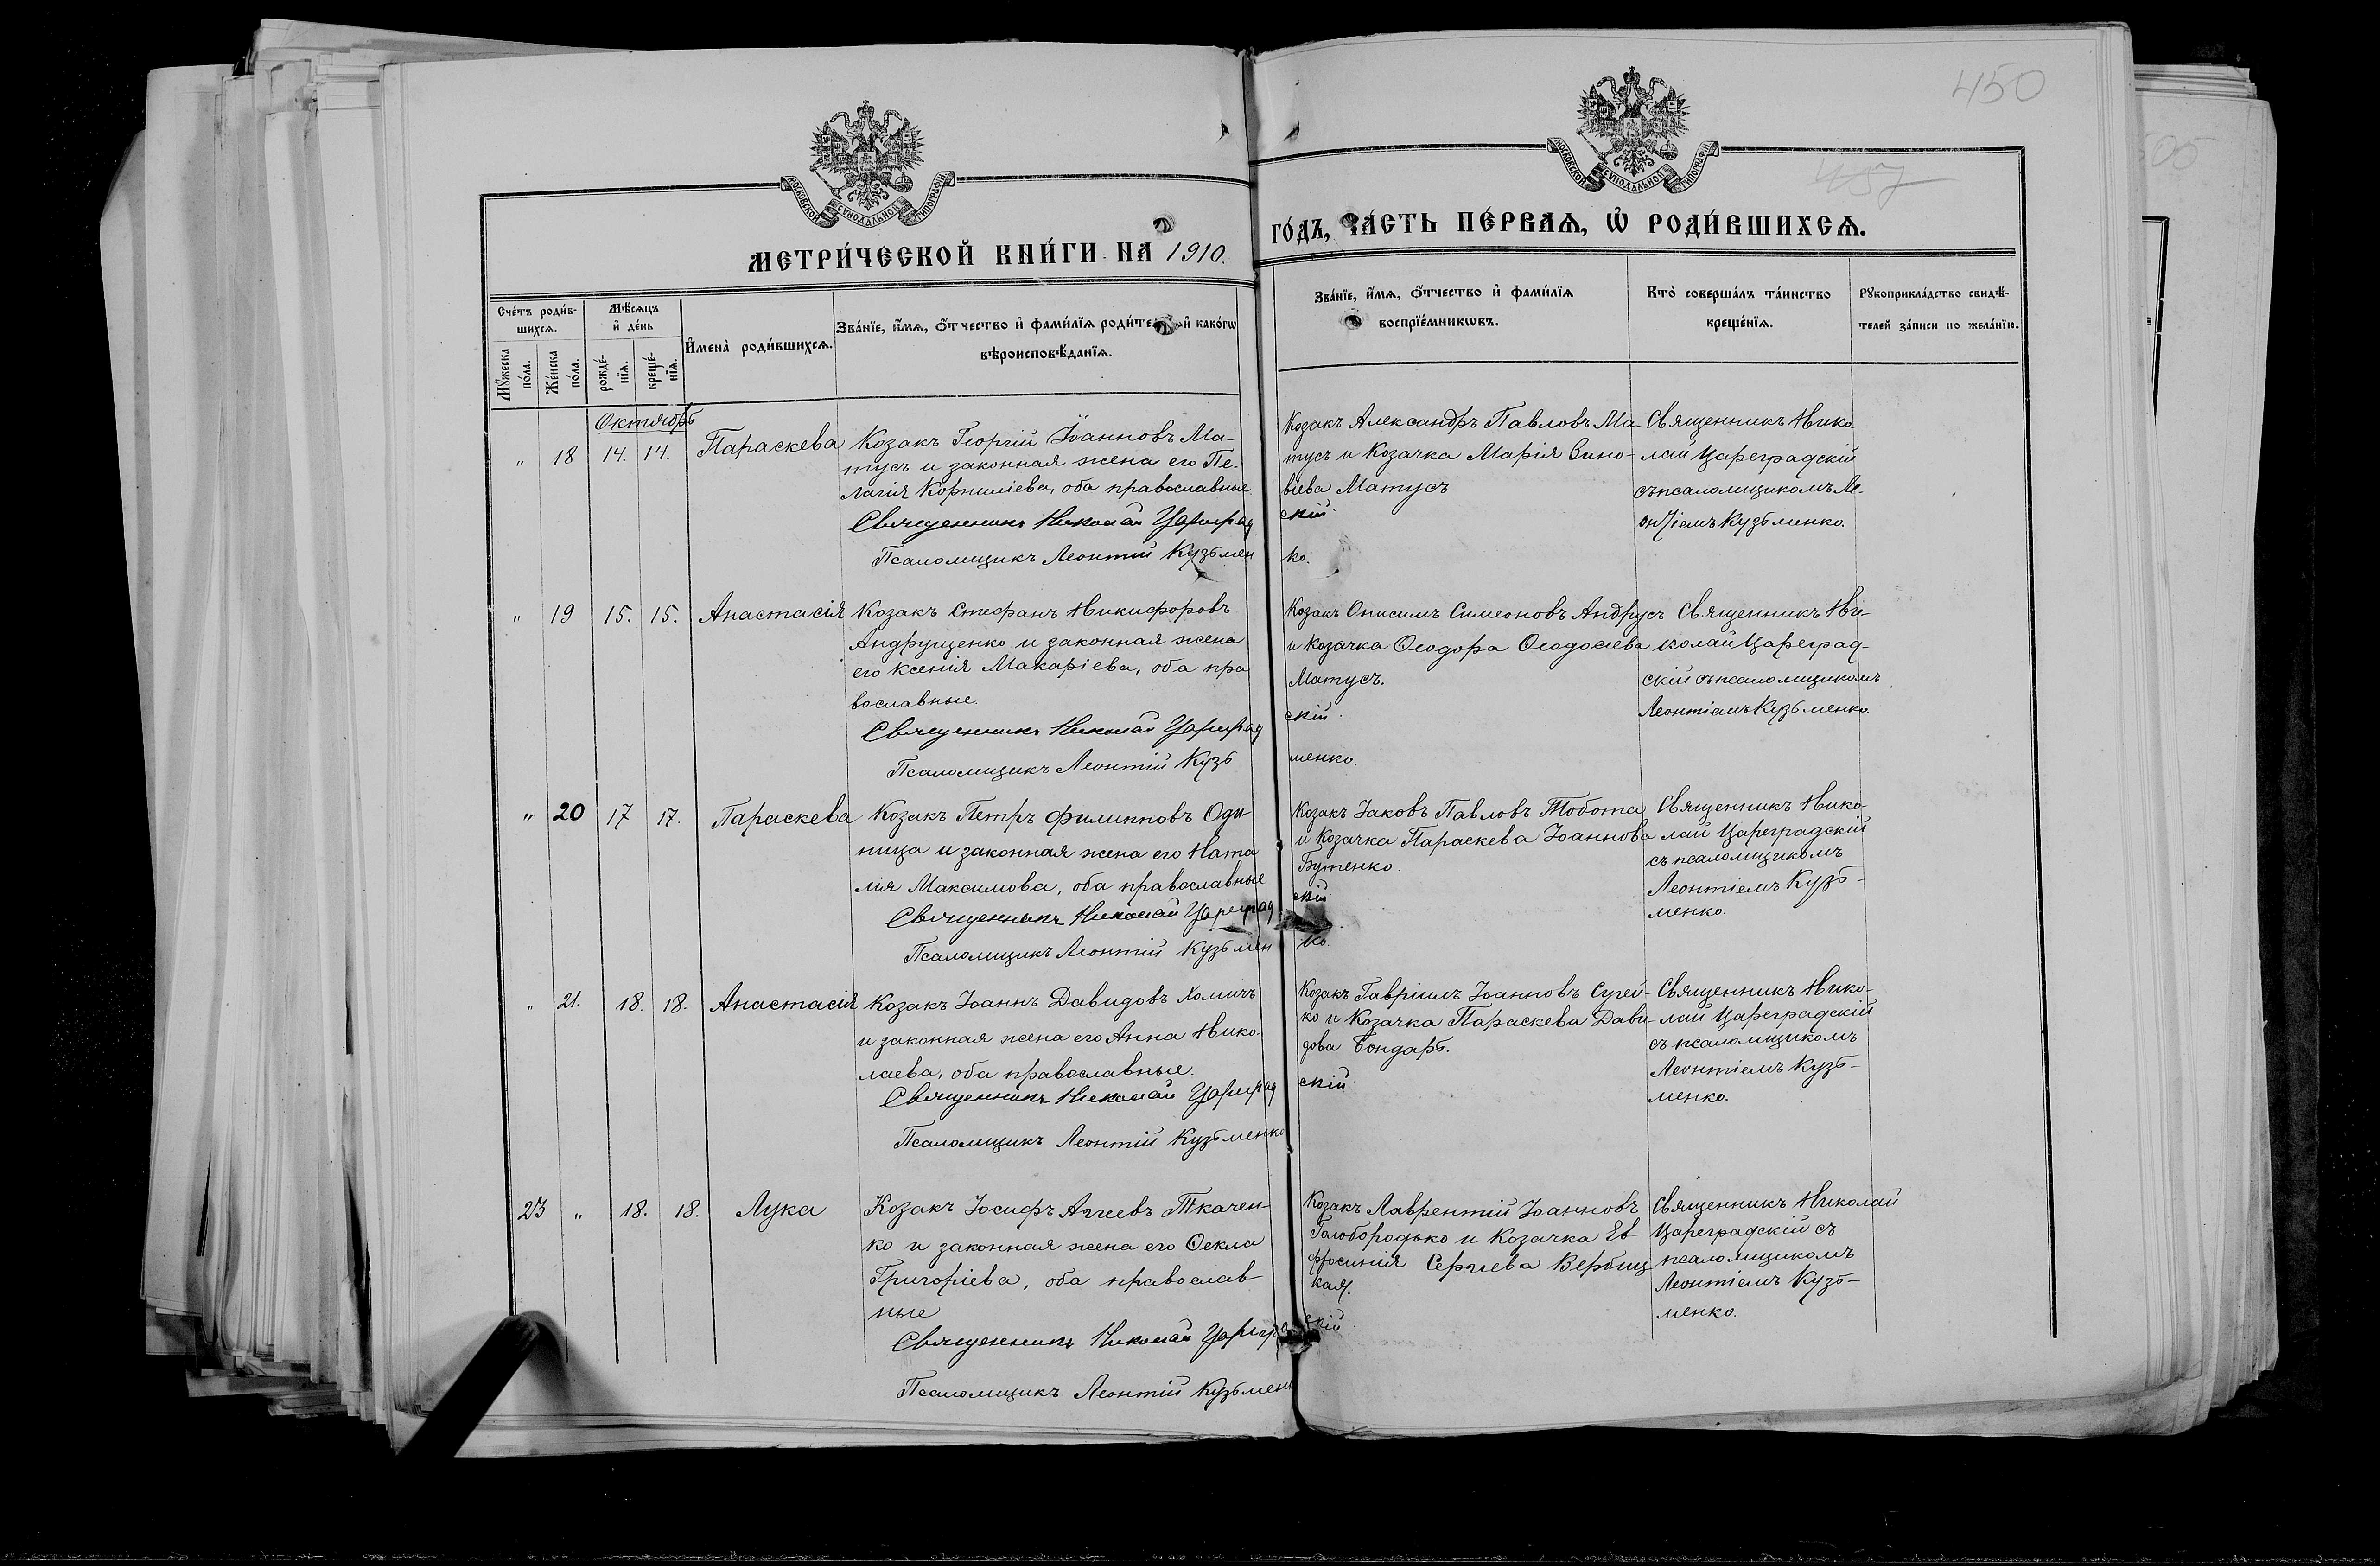 450
457
505
МОСКОВСКОЙ СѴНОДАЛЬНОЙ ТИПОГРАФІИ
МОСКОВСКОЙ СѴНОДАЛЬНОЙ ТИПОГРАФІИ
МЕТРИ́ЧЕСКОЙ КНИ́ГИ НА 1910.
ГО́ДЪ, ЧА́СТЬ ПЕ́РВАѦ, Ѡ҆ РОДИ́ВШИХСѦ.
Сче́тъ роди́в-
шихсѧ.
Мꙋ́жеска
по́ла.
Же́нска
по́ла.
Мѣ́сѧцъ
и҆ де́нь
рожде́-
нїѧ.
креще́-
нїѧ.
И҆мена̀ роди́вшихсѧ.
Зва́нїе, и҆́мѧ, ѻ҆́тчество и҆ фами́лїѧ роди́те и҆ како́гѡ
вѣроисповѣ́данїѧ.
Зва́нїе, и҆́мѧ, ѻ҆́тчество и҆ фами́лїѧ
воспрїе́мникѡвъ.
Кто̀ соверша́лъ та́инство
креще́нїѧ.
Рꙋкоприкла́дство свидѣ́-
телей за́писи по жела́нїю.
Октябрь
„ 18 14. 14. Параскева
Козакъ Георгій Іоанновъ Ма-
тусъ и законная жена его Пе-
лагія Корниліева, оба православные
Священникъ Николай Цареград
Псаломщикъ Леонтій Кузьмен
Козакъ Александръ Павловъ Ма-
тусъ и Козачка Марія Зино-
віева Матусъ
скій.
ко.
Священникъ Нико-
лай Цареградскій
съ псаломщикомъ Ле-
онтіемъ Кузьменко.
„ 19 15. 15. Анастасія
Козакъ Стефанъ Никифоровъ
Андрущенко и законная жена
его Ксенія Макаріева, оба пра
вославные.
Священникъ Николай Цареград
Псаломщикъ Леонтій Кузь
Козакъ Онисимъ Симеоновъ Андрусъ
и Козачка Ѳеодора Ѳеодосіева
Матусъ.
скій.
менко.
Священникъ Ни-
колай Цареград-
скій съ псаломщикомъ
Леонтіемъ Кузьменко.
„ 20 17 17. Параскева
Козакъ Петръ Филипповъ Оди
ница и законная жена его Ната
лія Максимова, оба православные
Священникъ Николай Цареград
Псаломщикъ Леонтій Кузьмен
Козакъ Іаковъ Павловъ Тобота
и Козачка Параскева Іоаннова
Бутенко.
скій
ко.
Священникъ Нико-
лай Цареградскій
съ псаломщикомъ
Леонтіемъ Кузь-
менко.
„ 21. 18. 18. Анастасія
Козакъ Іоаннъ Давидовъ Хомичъ
и законная жена его Анна Нико-
лаева, оба православные.
Священникъ Николай Цареград
Псаломщикъ Леонтій Кузьменко
Козакъ Гавріилъ Іоанновъ Сугей-
ко и Козачка Параскева Дави-
дова Бондарь.
скій
Священникъ Нико-
лай Цареградскій
съ псаломщикомъ
Леонтіемъ Кузь-
менко.
23 „ 18. 18. Лука
Козакъ Іосифъ Аггеевъ Ткачен-
ко и законная жена его Ѳекла
Григоріева, оба православ-
ные
Священникъ Николай Цареград
Псаломщикъ Леонтій Кузьмен
Козакъ Лаврентій Іоанновъ
Голобородько и Козачка Ев-
фросинія Сергіева Вербиц
кая.
скій.
Священникъ Николай
Цареградскій съ
псаломщикомъ
Леонтіемъ Кузь-
менко.